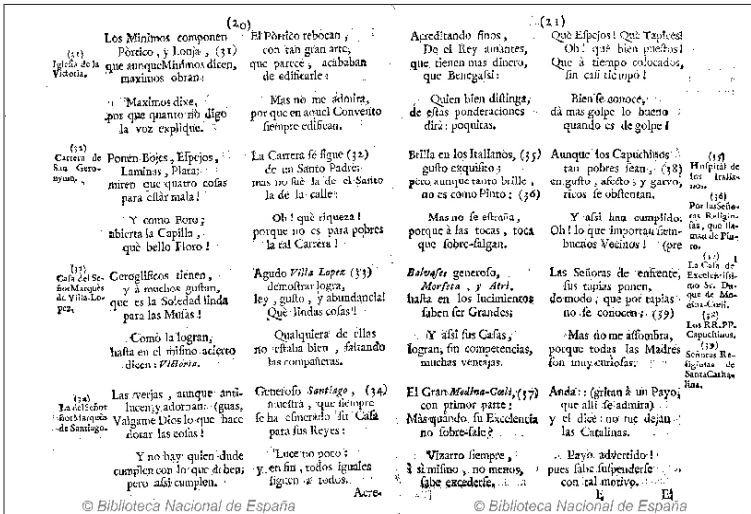 (20)
(31)
Iglesia de la
Victoria.
Los Minimos componen
Pòrtico, y Lonja, (31)
que aunque Minimos dicen,
maximos obran:
Maximos dixe,
por que quanto no digo
la voz explique.
(32)
Carrera de
San Gero-
nymo.
Ponen Bojes, Espejos,
Laminas, Plata;
miren que quatro cosas
para estàr mala!
Y como Foro;
abierta la Capilla,
què bello Floro!
(33)
Casa del Se-
ñor Marquès
de Villa-Lo-
pez.
Geroglificos tienen,
y à muchos gustan,
que es la Soledad linda
para las Musas!
Como la logran,
hasta en el mismo acierto
dicen: Victoria.
(34)
La del Señor
Marquès
de Santiago.
Las verjas, aunque anti-
lucen, y adornan: (guas,
Valgame Dios lo que hace
notar las cosas!
Y no hay quien dude
cumplen con lo que deben;
pero assi cumplen.
El Pòrtico rebocan,
con tan gran arte,
que parece, acababan
de edificarle:
Mas no me admira,
por que en aquel Convento
siempre edifican.
La Carrera se sigue (32)
de un Santo Padre;
mas no fuè la de el Santo
la de la calle:
Oh! què riqueza!
porque no es para pobres
la tal Carrera!
Agudo Villa Lopez (33)
demostrar logra,
ley, gusto, y abundancia!
Què lindas cosas!
Qualquiera de ellas
no estaba bien, faltando
las compañeras.
Generoso Santiago, (34)
muestra, que siempre
se ha esmerado su Casa
para sus Reyes:
Luce no poco;
y en fin, todos iguales
siguen à todos.
Acre-
(21)
Acreditando finos,
De el Rey amantes,
que tienen mas dinero,
que Benegasi:
Quien bien distinga,
de estas ponderaciones
dirà: poquitas.
Brilla en los Italianos, (35)
gusto exquisito;
pero aunque tanto brille,
no es como Pinto: (36)
Mas no se estraña,
porque à las tocas, toca
que sobre-salgan.
Balvases generoso,
Morseta, y Atri,
hasta en los lucimientos
saben ser Grandes;
Y assi sus Casas,
logran, sin competencias,
muchas ventajas.
El Gran Medina-Coeli, (37)
con primor parte:
Mas quando su Excelencia
no sobre-sale?
Vizarro siempre,
à sì mismo, no menos,
sabe excederse.
Què Espejos! Què Tapices!
Oh! què bien puestos!
Que à tiempo colocados,
sin casi tiempo!
Bien se conoce,
dà mas golpe lo bueno
quando es de golpe!
Aunque los Capuchinos
tan pobres sean, (38)
en gusto, afecto, y garvo,
ricos se obstentan.
Y assi han cumplido:
Oh! lo que importan siem-
buenos Vecinos! (pre
Las Señoras de enfrente,
sus tapias ponen,
de modo, que por tapias
no se conocen: (39)
Mas no me assombra,
porque todas las Madres
son muy curiosas.
Anda:: (gritan à un Payo,
que alli se admira)
y èl dice: no me dejan
las Catalinas.
Payo advertido!
pues sabe suspenderse
con tal motivo.
(35)
Hospital de
los Italia-
nos.
(36)
Por las Seño-
ras Religio-
sas, que lla-
man de Pin-
to.
(37)
La Casa de
Excelentissi-
mo Sr. Du-
que de Me-
dina-Coeli.
(38)
Los RR. PP.
Capuchinos.
(39)
Señoras Re-
ligiosas de
Santa Catha-
lina.
© Biblioteca Nacional de España
© Biblioteca Nacional de España